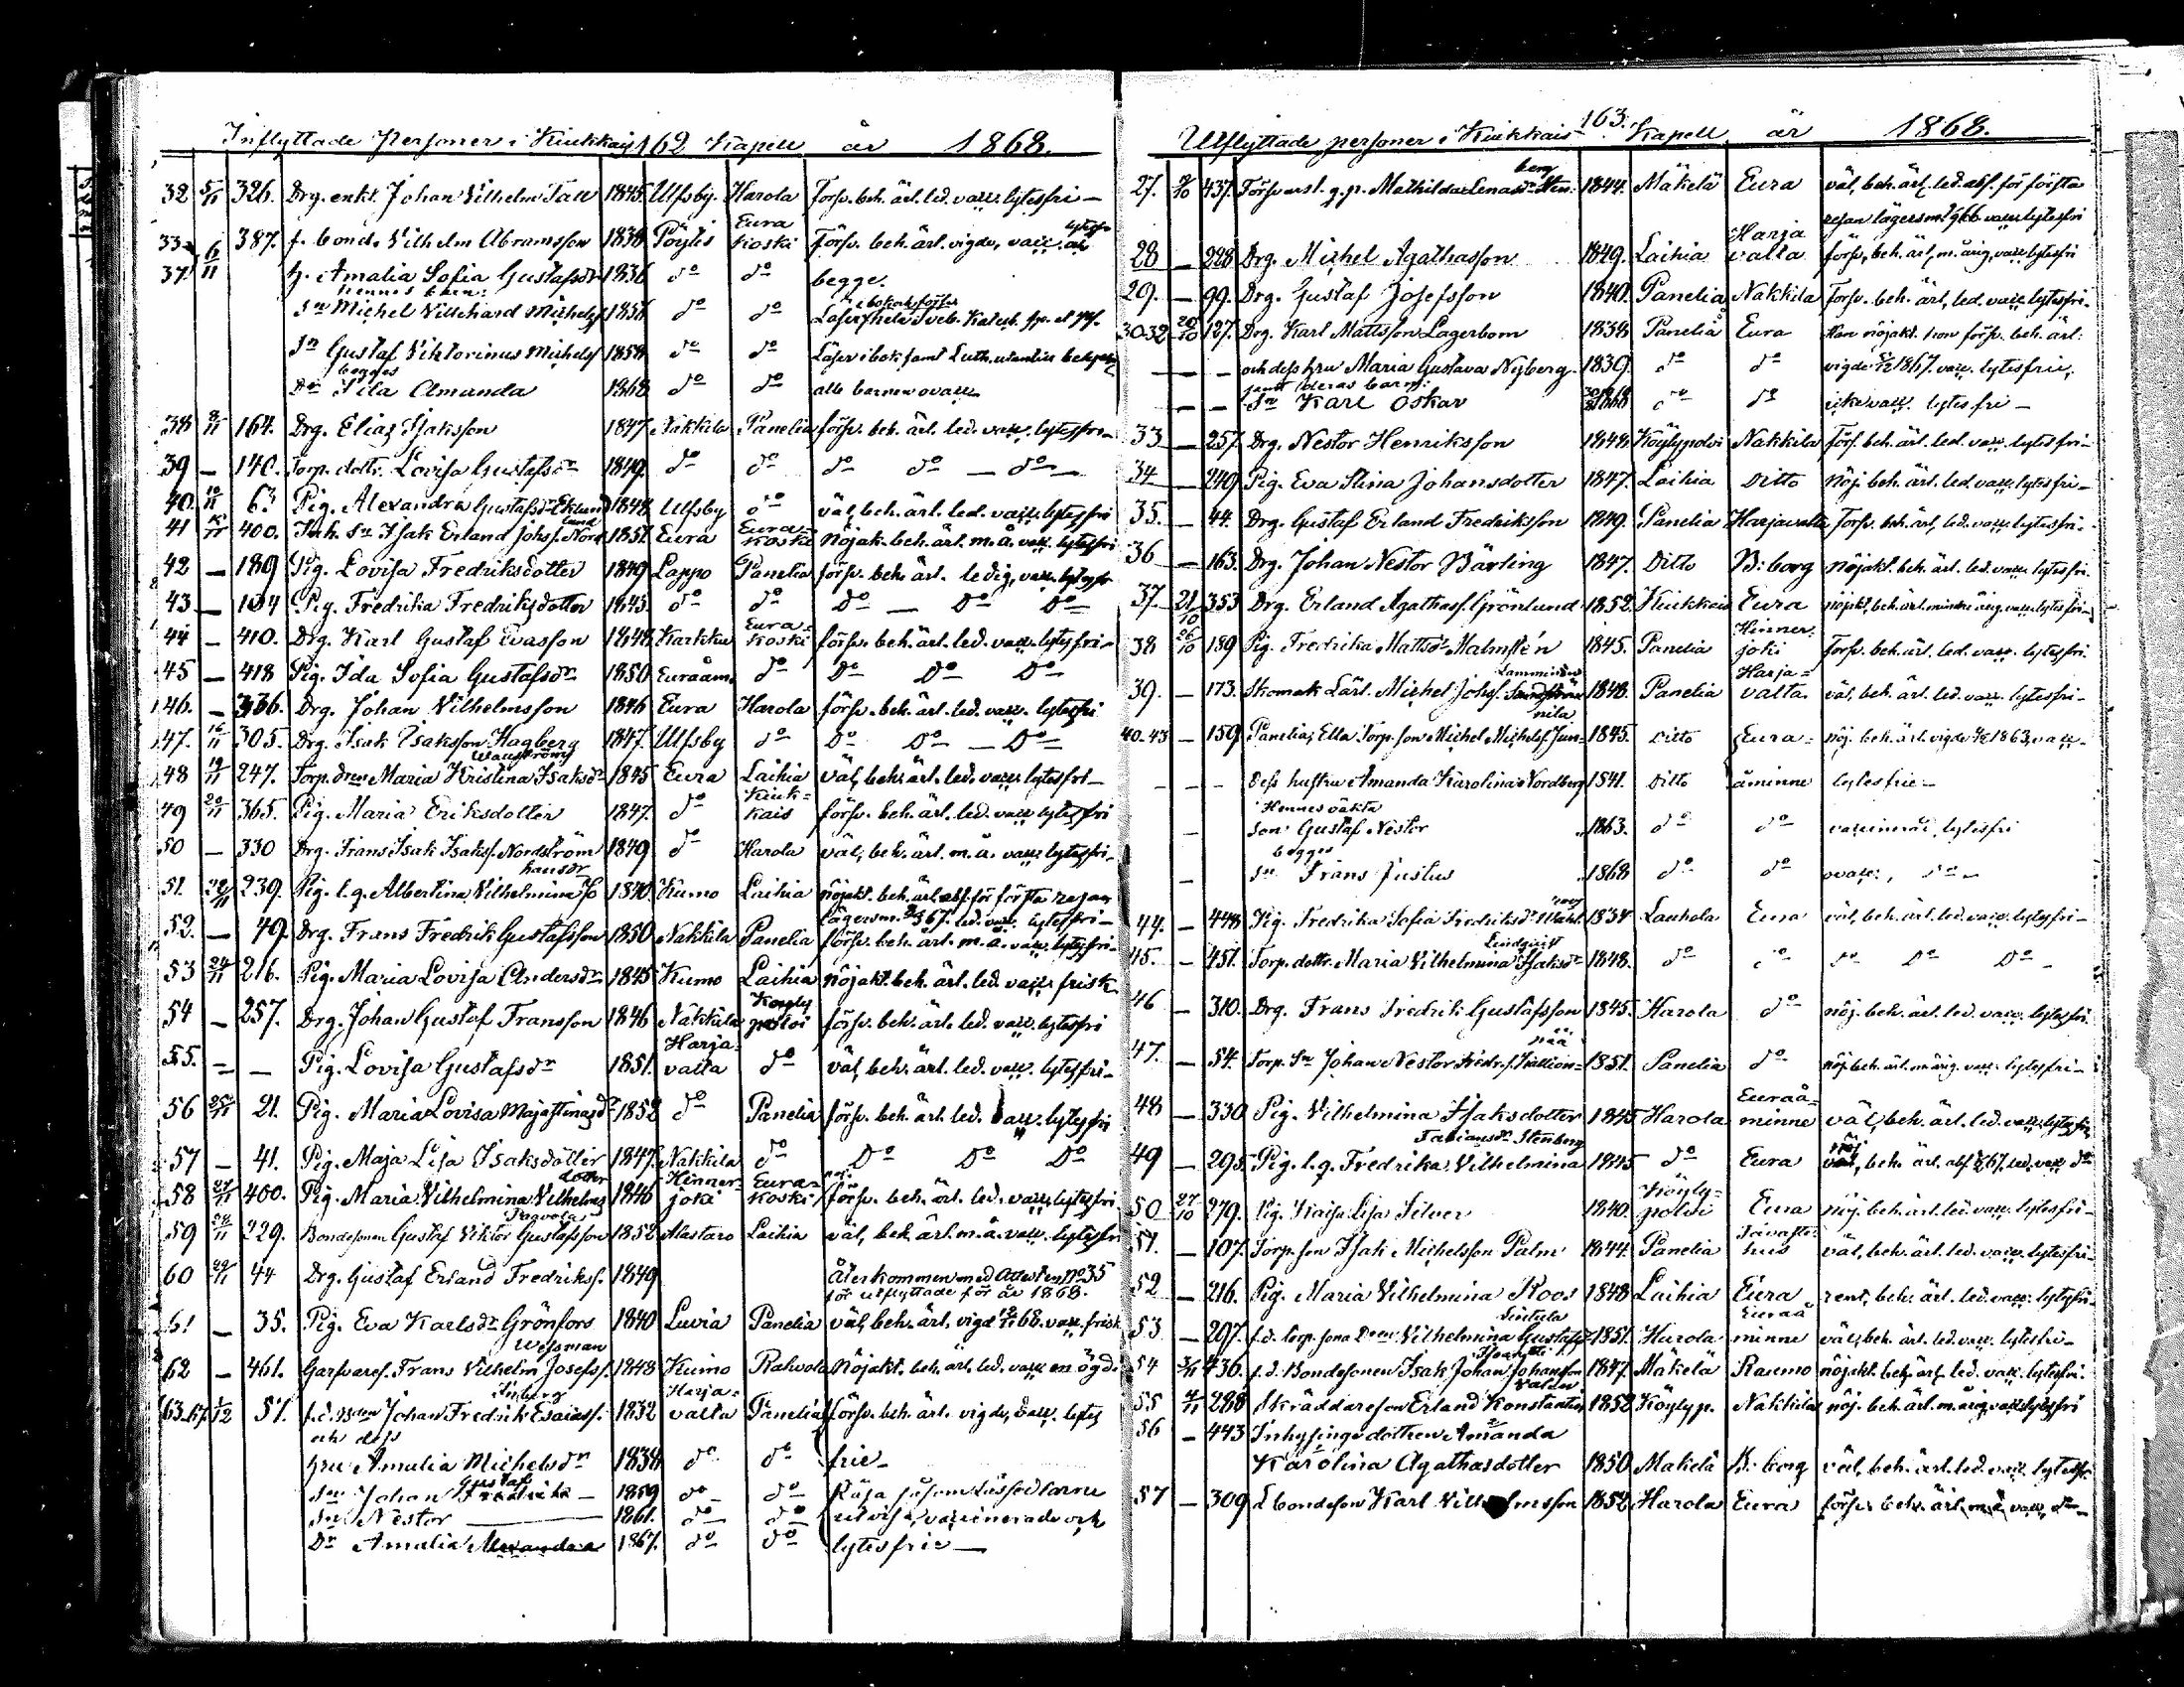 Inflyttade Personer i Kiukkais 162 Kapell år 1868.
32 5/11 326. Drg. enkl. Johan Vilhelm Tall 1845. Ulfsby. Harola försv. beh. ärl. led. vacc. lytesfri
33- 6/11 387. f. bond. Vilhelm Abramsson 1838 Pöytis Eura koski försv. beh. ärl. vigde, vacc. lytesfr
37. h. Amalia Sofia Gustafsdr 1836 do do begge.
hennes barn:
Sn Michel Villehard Michelsf 1856 do do
Sn Gustaf Viktorinus Michelsf 1858 do do Läser i bok samt Luth. utantill
begges
Dr Ida Amanda 1868 do do alla barnen ovacc.
38 8/11 164. Drg. Elias Isaksson 1847 Nakkila Panelia försv. beh. ärl. led. vacc. lytesfri
39 — 140. Torp. dottr. Lovisa Gustafsdr 1849. do do do do — do —
40. 10/11 63 Pig. Alexandra Gustafsdr Eklund 1848 Ulfsby do väl, beh. ärl. led. vacc. lytesfri
41 400. Inh. Sn Isak Erland Johsf. Nordlund 1851 Eura Eura-koski Nöjak. beh. ärl. m. å. vacc. lytesfri
42 — 189 Pig. Lovisa Fredriksdotter 1849 Lappo Panelia försv. beh. ärl. ledig, vacc. lytesfr
43 — 134 Pig. Fredrika Fredriksdotter 1845. do do Do — Do Do —
44 — 410. Drg. Karl Gustaf Evasson 1848 Karkku Eura-koski försv. beh. ärl. led. vacc. lytesfri
45 — 418 Pig. Ida Sofia Gustafsdr 1850 Euraåm. do Do Do Do
46. — 336. Drg. Johan Vilhelmsson 1846 Eura Harola försv. beh. ärl. led. vacc. lytesfri
47. 16/11 305. Drg. Isak Isaksson Hagberg 1847. Ulfsby do Do Do — Do —
48 19/11 247. Torp. dren Maria Kristina Isaksdr Wallström 1845 Eura Laihia väl, beh. ärl. led. vacc. lytesfri
49 20/11 365. Pig. Maria Eriksdotter 1847. do Kiuk-kais försv. beh. ärl. led. vacc. lytesfri
50 — 330 Drg. Frans Isak Isaksf. Nordström 1849 do Harola väl, beh. ärl. m. å. vacc. lytesfri
51. 239. Pig. l.g. Albertina Vilhelmina Johansdr 1840. Kumo Laihia nöjakt. beh. ärl. abs. för första resan
lägersm. 67. led. vacc. lytesfri
52. — 49. Drg. Frans Fredrik Gustafsson 1850 Nakkila Panelia försv. beh. ärl. m. å. vacc. lytesfri
53 24/11 216. Pig. Maria Lovisa Andersdr 1845 Kumo Laihia nöjakt. beh. ärl. led. vacc. frisk
54 — 257. Drg. Johan Gustaf Fransson 1846 Nakkila Köyly polvi försv. beh. ärl. led. vacc. lytesfri
55. — — Pig. Lovisa Gustafsdr 1851. Harja-valta do väl, beh. ärl. led. vacc. lytesfri
56 25/11 21. Pig. Maria Lovisa Majastinasdr 1852 do Panelia försv. beh. ärl. led. vacc. lytesfri
57 — 41. Pig. Maja Lisa Isaksdotter 1847. Nakkila do Do Do Do
58 27/11 400. Pig. Maria Vilhelmina Vilhelmsdotter 1846 Hinner-joki Eura-koski försv. beh. ärl. led. vacc. lytesfri
59 28/11 229. Bondesonen Gustaf Viktor Gustafsson 1852 Alastaro Laihia väl, beh. ärl. m. å. vacc. lytesfri
60 29/11 44 Drg. Gustaf Erland Fredriksf. 1849 Återkommen med Attesten No 35
för utflyttade för år 1868.
61 — 35. Pig. Eva Karlsdr Grönfors 1840 Luvia Panelia väl, beh. ärl. vigd 68. vacc. frisk
62 — 461. Garfvaref. Frans Vilhelm Josefsf. Wessman 1848 Kumo Rahvola Nöjakt. beh. ärl. led. vacc.
63-67. 1/12 51. f.d. Johan Fredrik Esaiasf. 1832 Harja-valta Panelia försv. beh. ärl. vigde, vacc. lytes
och dess
hru Amalia Michelsdr 1838 do do frie
Sn Johan Gustaf 1859 do do
Sn Nestor 1861. do do utvisa, vaccinerade och
Dr Amalia Alexandra 1867. do do lytesfrie —
Utflyttade personer i Kiukkais 163. Kapell år 1868.
27. 437. Försvarsl. q.p. Mathilda Lenasdr Stenberg 1844. Mäkelä Eura väl, beh. ärl. led. abs. för första
resan lägersm. 1866 vacc. lytesfri
28 — 228 Drg. Michel Agathasson 1849. Laihia Harja valta försv., beh. ärl, m. årig, vacc. lytesfri
29. — 99. Drg. Gustaf Josefsson 1840. Panelia Nakkila Försv. beh. ärl, led. vacc. lytesfri.
30-32 20/10 127. Drg. Karl Mattsson Lagerbom 1838 Panelia Eura Han nöjakt. hon försv. beh. ärl:
— — och dess hru Maria Gustava Nyberg 1839. do do vigde 1867. vacc. lytesfrie,
samt deras barn:
— — Sn Karl Oskar 1868 do do icke vacc. lytesfri —
33 — 257. Drg. Nestor Henriksson 1848 Köylypolvi Nakkila försv. beh. ärl. led. vacc. lytesfri
34 — 249 Pig. Eva Stina Johansdotter 1847. Laihia Ditto nöj. beh. ärl. led. vacc. lytesfri
35. — 44. Drg. Gustaf Erland Fredriksson 1849. Panelia Harjavalta försv. beh. ärl, led. vacc. lytesfri.
36 — 163. Drg. Johan Nestor Bärling 1847. Ditto B:borg nöjakt. beh. ärl. led. vacc. lytesfri.
37. 21/10 353 Drg. Erland Agathasf. Grönlund 1852. Kiukkais Eura nöjakt, beh. ärl. mindre årig. vacc. lytesfri
38 26/10 189 Pig. Fredrika Mattsdr Malmsten 1845. Panelia Hinner-joki försv. beh. ärl. led. vacc. lytesfri.
39. — 173. Skomak. Lärl. Michel Johsf. 1848. Panelia Harja-valta. väl, beh. ärl. led. vacc. lytesfri
40-43 — 159 Panelia, Ella Torp. son Michel Michelsf Junnila 1845. Ditto Eura- nöj. beh. ärl. vigde 1863, vacc.
— — — Dess hustru Amanda Karolina Nordberg 1841. Ditto åminne lytesfrie —
Hennes oäkta
— son Gustaf Nestor 1863. do do vaccinerad, lytesfri
begges
— Sn Frans Justus 1868 do do ovacc:, do —
44. — 448 Pig. Fredrika Sofia Fredriksdr 1834 Lauhola Eura väl, beh. ärl. led. vacc. lytesfri
45. — 451. Torp. dottr. Maria Vilhelmina Isaksdr Lindqvist 1848. do do Do Do Do —
46 — 310. Drg. Frans Fredrik Gustafsson 1845. Harola do nöj. beh. ärl. led. vacc. lytesfri.
47. — 54. Torp. Sn Johan Nestor Fredr.f. Kallionpää 1851. Panelia do nöj. beh. ärl. m. årig. vacc. lytesfri
48 — 330 Pig. Vilhelmina Isaksdotter 1845 Harola Euraå-minne väl, beh. ärl. led. vacc. lytesfri
49 — 295. Pig. l.g. Fredrika Vilhelmina Fabiansdr Stenberg 1845 do Eura nöj, beh. ärl. abs. 67. led. vacc. do
50 27/10 279. Pig. Kaisa Lisa Silver 1840. Köyly-polvi Eura nöj. beh. ärl. led. vacc. lytesfri
51. — 107. Torp. son Isak Michelsson Palm 1844. Panelia Tavaste-hus väl, beh. ärl. led. vacc. lytesfri
52 — 216. Pig. Maria Vilhelmina Roos 1848 Laihia Eura rent, beh. ärl. led. vacc. lytesfri
53 — 297. f.d. Torp. sons Dren Vilhelmina Gustafsdr 1851. Harola Euraå minne väl, beh. ärl. led. vacc. lytesfri
54 3/11 436. f.d. Bondesonen Isak Johan Johansson 1847. Mäkelä Raumo nöjakt. beh. ärl. led. vacc. lytesfri.
55 4/11 288 Skräddareson Erland Konstantin 1852 Köylyp. Nakkila nöj. beh. ärl. m. årig, vacc. lytesfri
56 — 443 Inhysinge dottren Amanda
Karolina Agathasdotter 1850. Mäkelä B:borg väl, beh. ärl. led. vacc. lytesfr
57 — 309 Lbondeson Karl Vilhelmsson 1852 Harola Eura försv. beh. ärl. m. å. vacc. do —